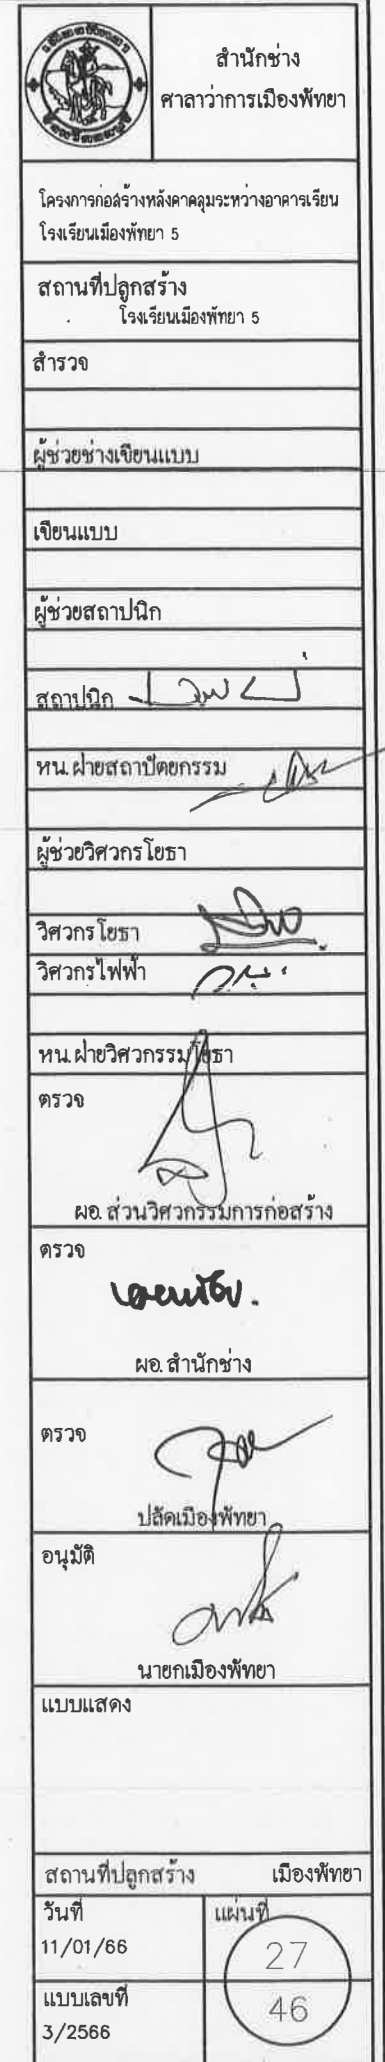 สำนักช่าง
ศาลาว่าการเมืองพัทยา
โครงการก่อสร้างหลังคาคลุมระหว่างอาคารเรียน
โรงเรียนเมืองพัทยา 5
สถานที่ปลูกสร้าง
โรงเรียนเมืองพัทยา 5
สำรวจ
ผู้ช่วยช่างเขียนแบบ
เขียนแบบ
ผู้ช่วยสถาปนิก
สถาปนิก
หน.ฝ่ายสถาปัตยกรรม
ผู้ช่วยวิศวกรโยธา
วิศวกรโยธา
วิศวกรไฟฟ้า
หน.ฝ่ายวิศวกรรมโยธา
ตรวจ
ผอ.ส่วนวิศวกรรมการก่อสร้าง
ตรวจ
ผอ.สำนักช่าง
ตรวจ
ปลัดเมืองพัทยา
อนุมัติ
นายกเมืองพัทยา
แบบแสดง
สถานที่ปลูกสร้าง เมืองพัทยา
วันที่ แผ่นที่
11/01/66 27
แบบเลขที่ 46
3/2566